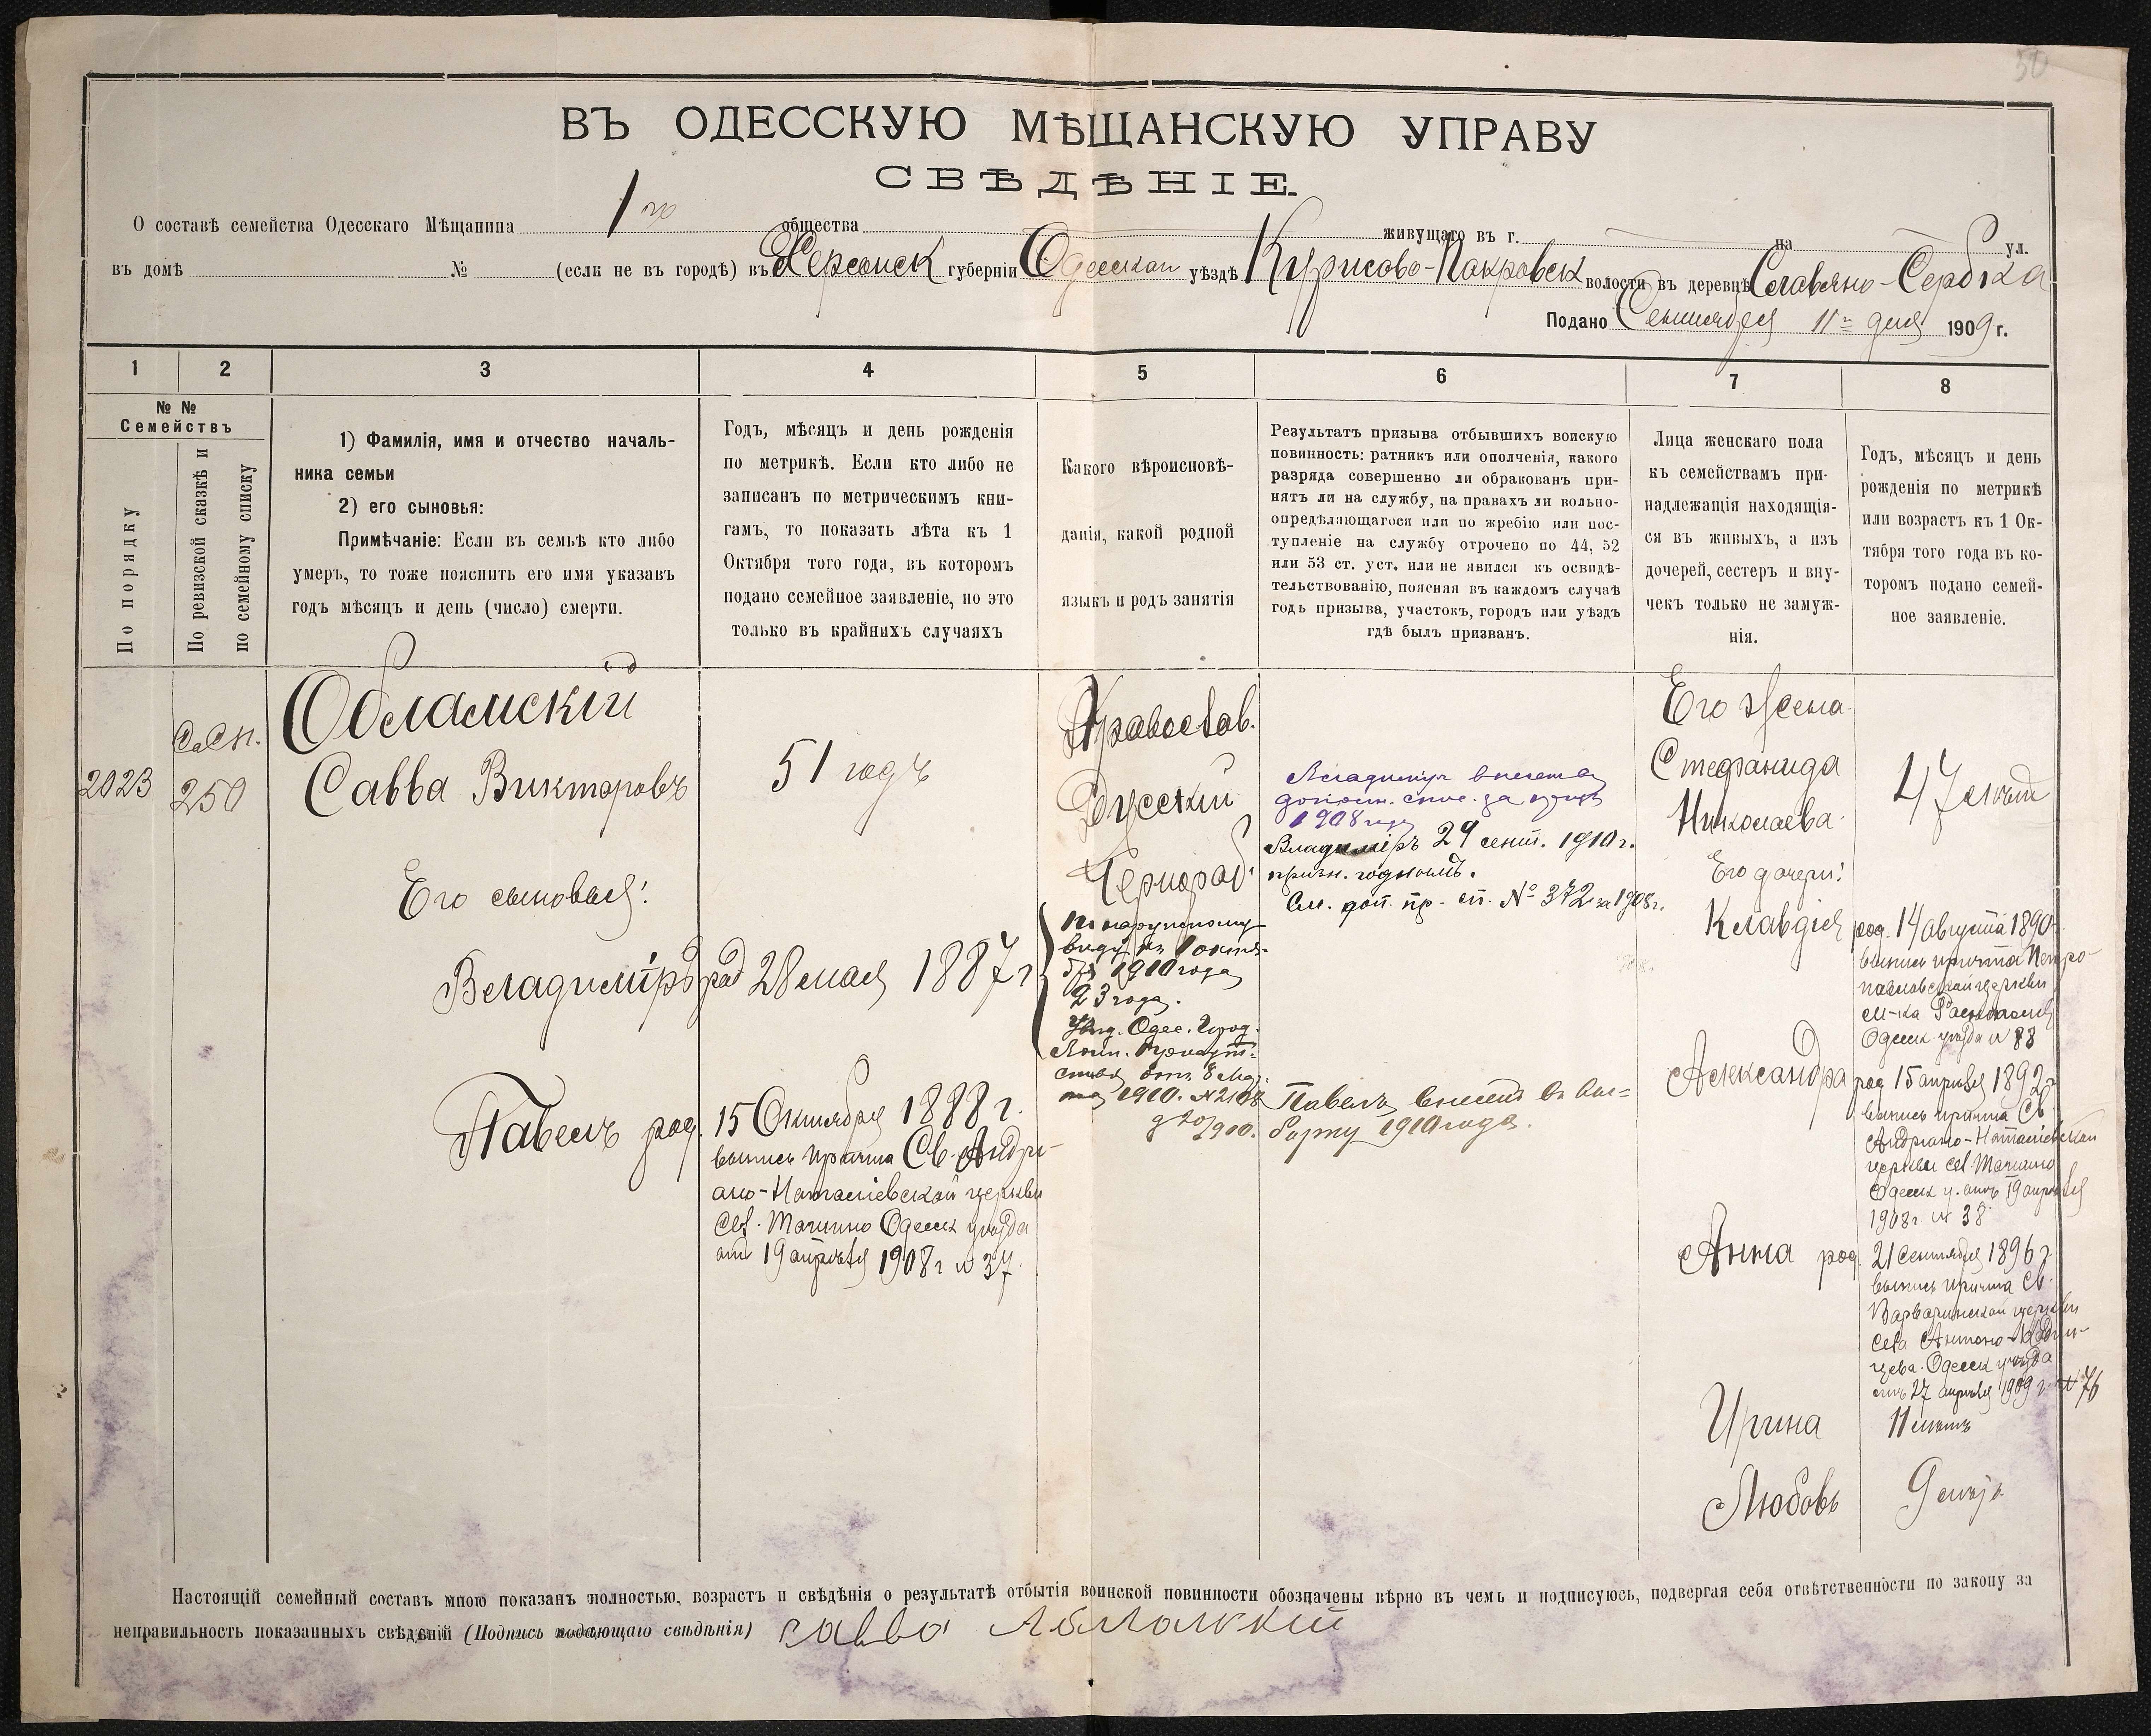 50
ВЪ ОДЕССКУЮ МѢЩАНСКУЮ УПРАВУ
СВѢДѢНІЕ.
О составѣ семейства Одесскаго Мѣщанина 1го общества живущаго въ г. на ул.
въ домѣ № (если не въ городѣ) въ Херсонск губерніи Одесскаи уѣздѣ Курисово-Покровск волости въ деревнѣ Славяно-Сербка
Подано Сентября 11го дня 1909 г.
1 2 3 4 5 6 7 8
№ №
Семействъ
По порядку
По ревизской сказкѣ и
по семейному списку
1) Фамилія, имя и отчество началь-
ника семьи
2) его сыновья:
Примѣчаніе: Если въ семьѣ кто либо
умеръ, то тоже пояснить его имя указавъ
годъ мѣсяцъ и день (число) смерти.
Годъ, мѣсяцъ и день рожденія
по метрикѣ. Если кто либо не
записанъ по метрическимъ кни-
гамъ, то показать лѣта къ 1
Октября того года, въ которомъ
подано семейное заявленіе, но это
только въ крайнихъ случаяхъ
Какого вѣроисповѣ-
данія, какой родной
языкъ и родъ занятія
Результатъ призыва отбывшихъ воискую
повинность: ратникъ или ополченія, какого
разряда совершенно ли обракованъ при-
нятъ ли на службу, на правахъ ли вольно-
опредѣляющагося или по жребію или пос-
тупленіе на службу отрочено по 44, 52
или 53 ст. уст. или не явился къ освидѣ-
тельствованію, поясняя въ каждомъ случаѣ
годъ призыва, участокъ, городъ или уѣздъ
гдѣ былъ призванъ.
Лица женскаго пола
къ семействамъ при-
надлежащія находящія-
ся въ живыхъ, а изъ
дочерей, сестеръ и вну-
чекъ только не замуж-
нія.
Годъ, мѣсяцъ и день
рожденія по метрикѣ
или возрастъ къ 1 Ок-
тября того года въ ко-
торомъ подано семей-
ное заявленіе.
2023
250
Обламскій
Савва Викторовъ
51 годъ
Православ.
Русскій
Чернораб.
Его сыновья:
Владиміръ род 28 мая 1887 г
По наружному
виду къ 1 октя-
бря 1910 года
23 года.
Одес. Город.
1910. № 2108
Павелъ род. 15 Октября 1888 г.
выпись причта Св. Андрі-
ано-Наталіевской церкви
сел. Матино Одесск уѣзда
отъ 19 апрѣля 1908 г № 37
Владиміръ внесенъ
дополн. спис. за
1908 годъ
Владиміръ 29 сент. 1910 г.
призн. годнымъ.
См. доп. пр. сп. № 372 за 1908 г.
Павелъ внесенъ въ вы-
борку 1910 года.
Его Жена
Стефанида
Николаева
47 лѣтъ
Его дочери:
Клавдія род. 14 августа 1890 г
выпись причта Петро-
павловской церкви
м-ка
Одесск уѣзда № 88
Александра род 15 апрѣля 1892 г
выпись причта Св.
Андріано-Наталіевской
церкви сел. Матино
Одесск у. отъ 19 апрѣля
1908 г № 38
Анна род. 21 Сентября 1896 г
выпись причта Св.
Варваринской церкви
села Антоно-
Одесск уѣзда
отъ 27 апрѣля 1909 г № 76
Ирина 11 лѣтъ
Любовь 9 лѣтъ
Настоящій семейный составъ мною показанъ полностью, возрастъ и свѣдѣнія о результатѣ отбытія воинской повинности обозначены вѣрно въ чемъ и подписуюсь, подвергая себя отвѣтственности по закону за
неправильность показанныхъ свѣдѣній (Подпись подающаго свѣдѣнія) Савва Абламский